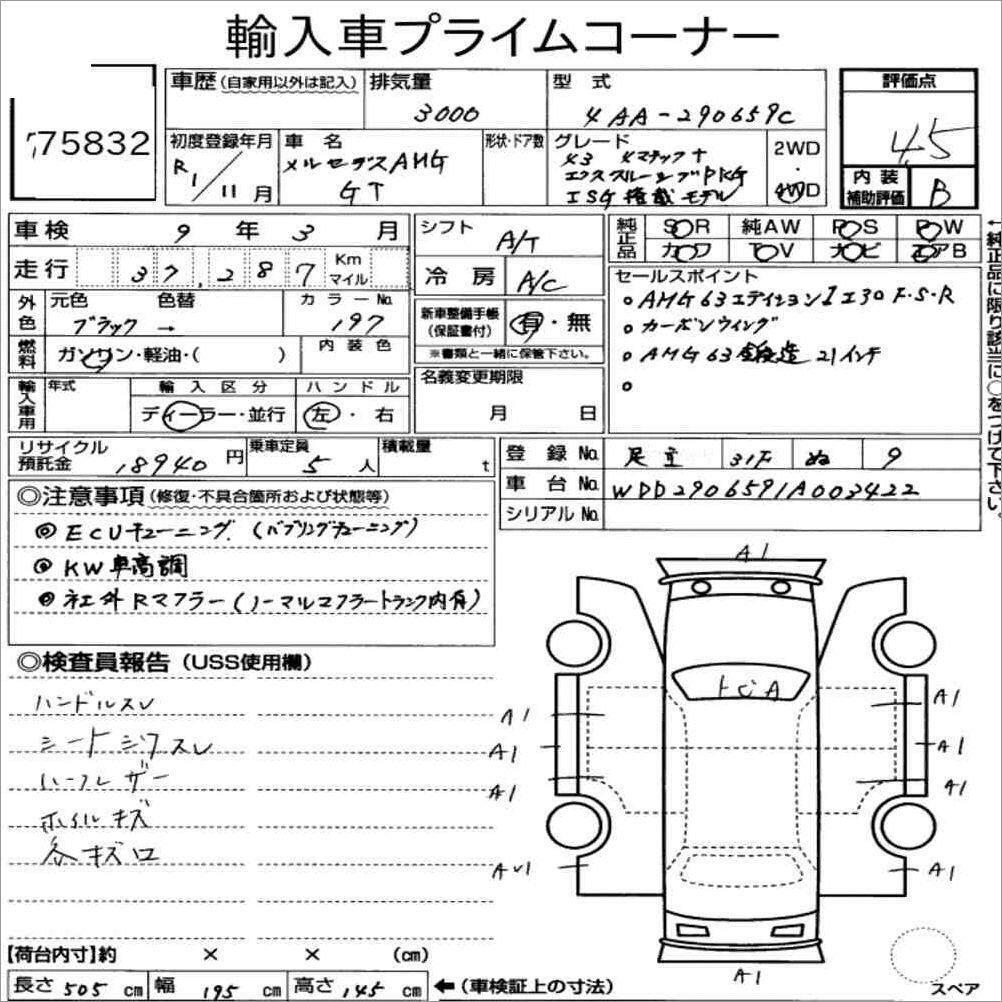 輸入車プライムコーナー
75832
車歴(自家用以外は記入)
排気量
3000
型式
4AA-290659C
評価点
4.5
初度登録年月
R1/11月
車名
メルセデスAMG
GT
形状・ドア数
グレード
43 4マチック+
エクスクルーシブPKG
ISG搭載モデル
2WD
4WD
内装
補助評価
B
車検 9年3月
シフト
A/T
純正品
SR 純AW PS PW
カワ TV ナビ エアB
走行
37,287
Km
マイル
冷房
A/C
セールスポイント
AMG63エディション1エアロ F・S・R
カーボンウイング
AMG63鍛造21インチ
外色
元色
色替
ブラック→
カラーNo.
197
新車整備手帳
(保証書付)
有・無
※書類と一緒に保管下さい。
燃料
ガソリン・軽油・( )
内装色
名義変更期限
月 日
輸入車用
年式
輸入区分
ディーラー・並行
ハンドル
左・右
←純正品に限り該当に○をつけて下さい。
リサイクル
預託金
18940円
乗車定員
5人
積載量
t
登録No.
足立 ぬ 9
車台No.
WDD2906591A003422
シリアルNo.
◎注意事項(修復・不具合箇所および状態等)
◎ECUチューニング.(バブリングチューニング)
◎KW車高調
◎社外Rマフラー(ノーマルマフラートランク内有)
◎検査員報告(USS使用欄)
ハンドルスレ
シートシワスレ
ハーフレザー
ホイルキズ
各キズ小
A1
トビA
A1
A1
A1
A1
A1
A1
A1
A1
【荷台内寸】約 × × (cm)
長さ505cm 幅195cm 高さ145cm
←(車検証上の寸法)
スペア